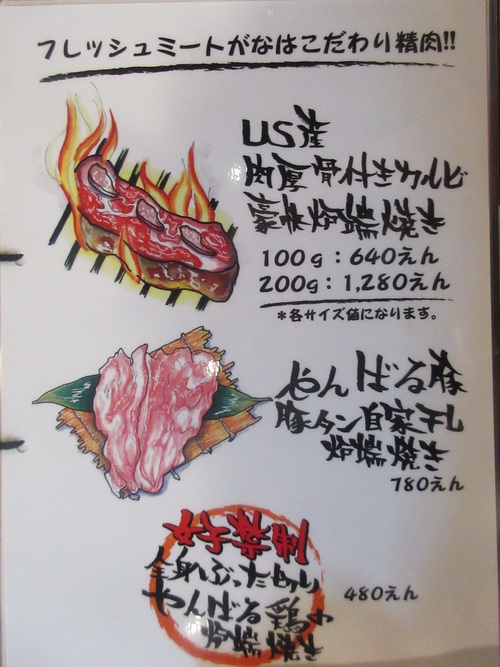 フレッシュミートがなはこだわり精肉!!
US産
肉厚骨付きカルビ
豪快炉端焼き
100g：640えん
200g：1,280えん
＊各サイズ値になります。
やんばる豚
豚タン自家干し
炉端焼き
780えん
全身ぶったぎり
やんばる鶏の
炉端焼き
480えん